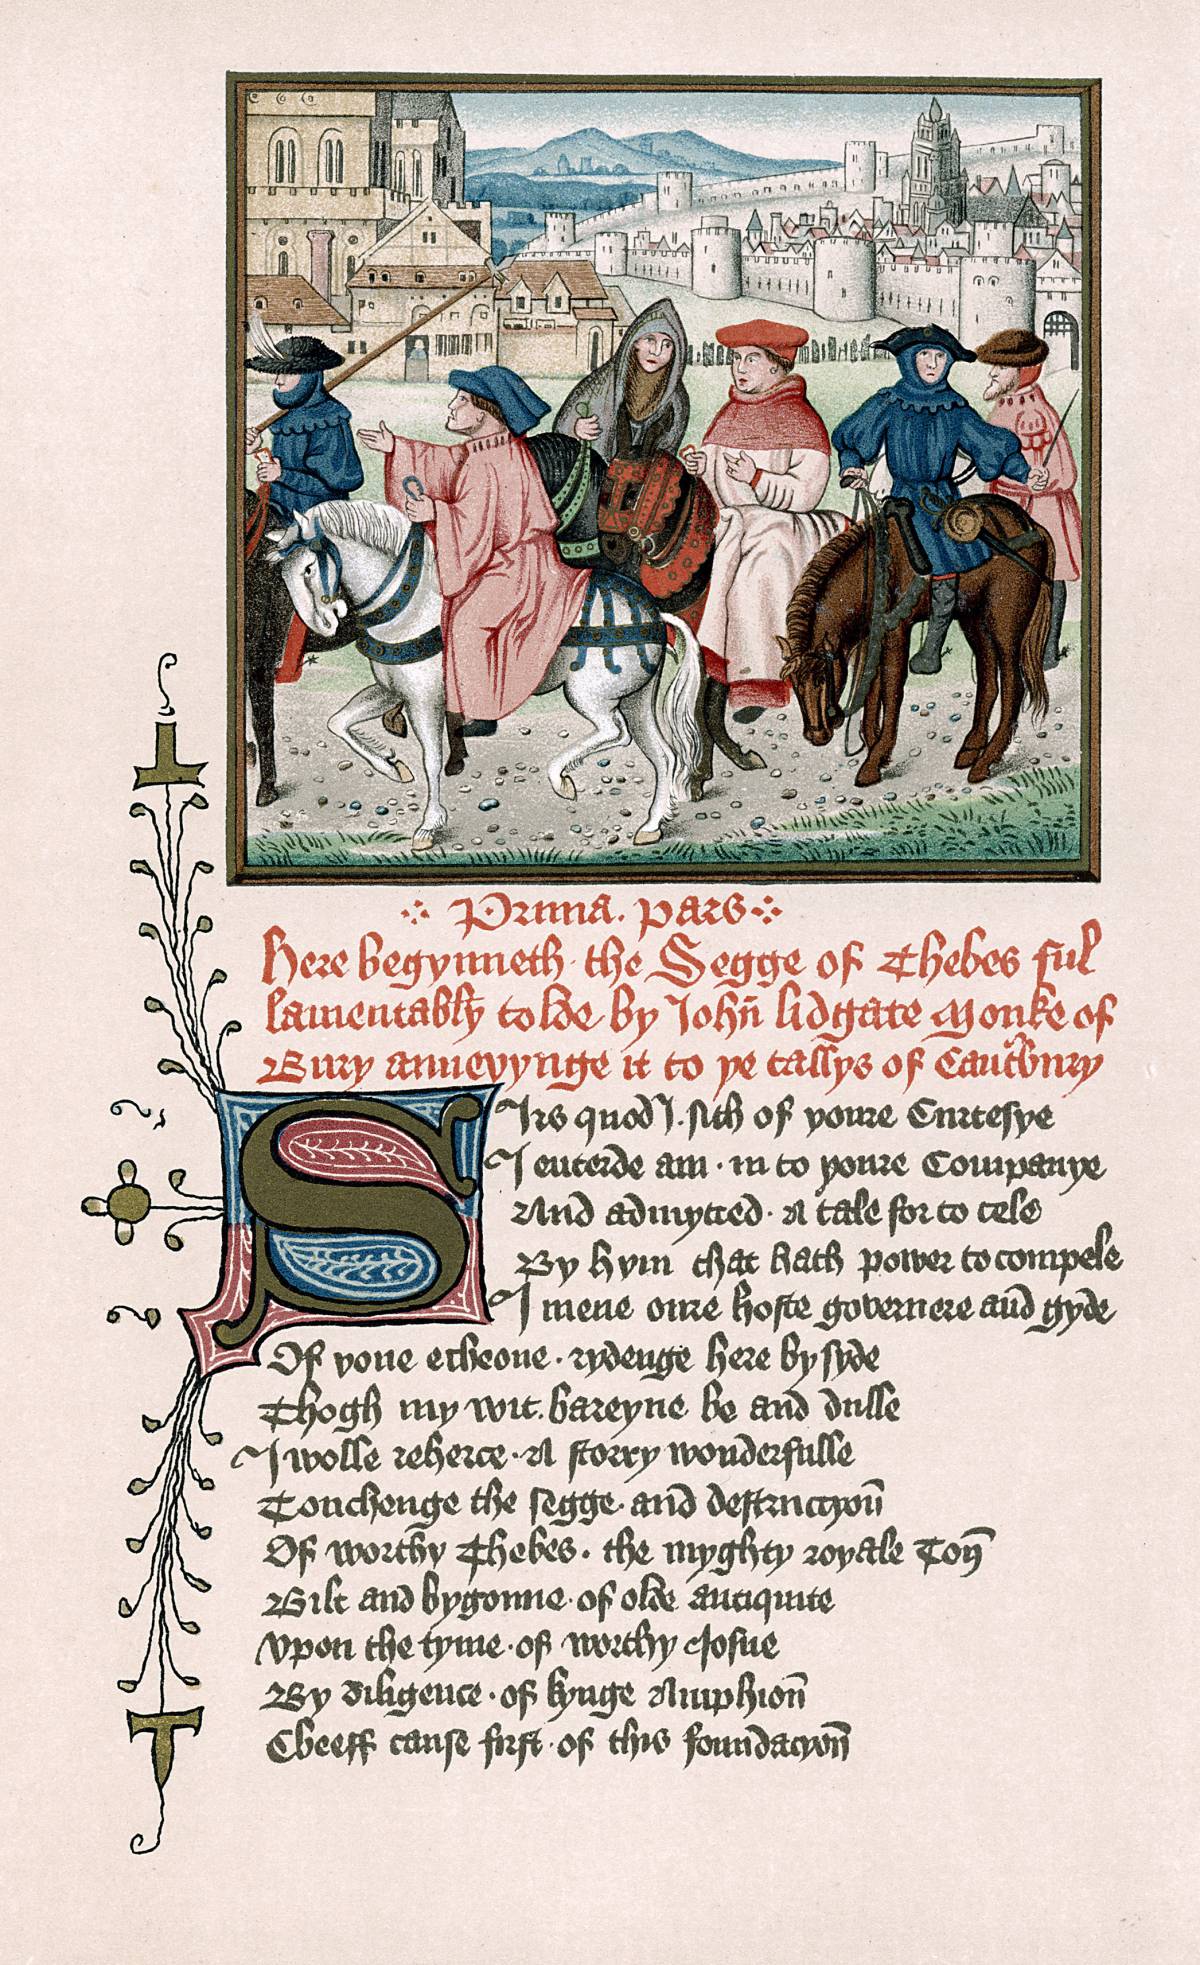 Prima. pars
Here begynneth the Segge of Thebes ful
lamentably tolde by John lidgate Monke of
Bury annexynge it to ye tallys of Cantbury
Sirs quod I. sith of youre Curtesye
I enterde am in to youre Companye
And admytted. A tale for to tele
By hym that hath power to compele
I mene oure hoste governere and gyde
Of yone echeone. rydenge here by syde
Thogh my wit. bareyne be and dulle
I wolle reherce. A storry wonderfulle
Touchenge the segge. and destruccyon
Of worthy Thebes. the myghty royale Ton
Bilt and bygonne. of olde antiquite
Vpon the tyme. of worthy Josue
By diligence. of kynge Amphion
Cheeff cause first. of this foundacyon